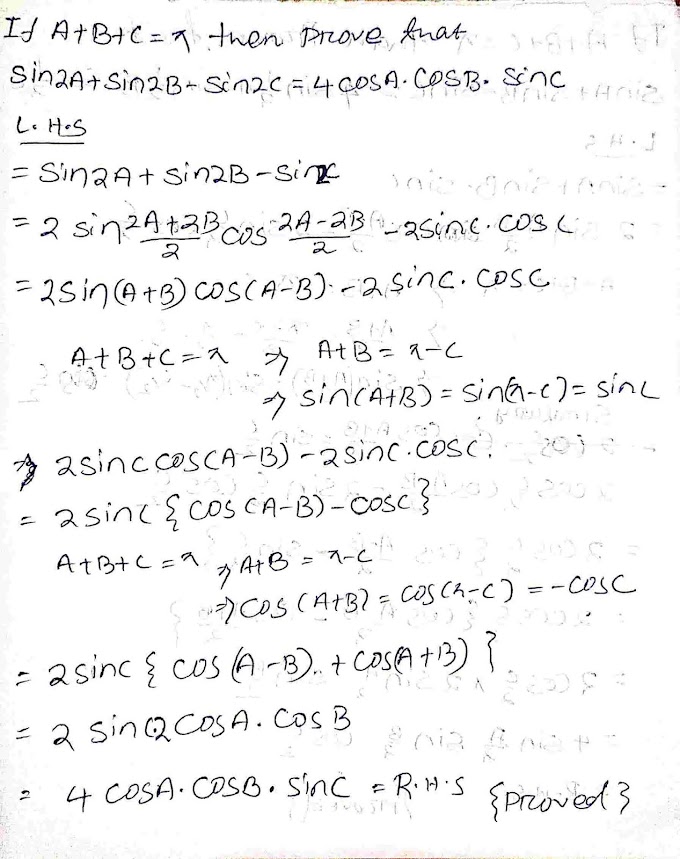 If A+B+C = π then prove that
Sin2A+Sin2B-Sin2C = 4 cosA. COSB. Sinc
L. H.S
= Sin2A + sin2B - sin2c
= 2 sin 2A+2B/2 cos 2A-2B/2 - 2sinc. cos c
= 2Sin(A+B) COS(A-B) - 2 sinc. cosc
A+B+C = π ⇒ A+B = π-c
⇒ sin(A+B) = sin(π-c) = sinc
⇒ 2sinc cos(A-B) - 2sinc.cosc.
= 2sinc { cos (A-B) - cosc }
A+B+C = π ⇒ A+B = π-c
⇒ cos (A+B) = cos(π-c) = -cosc
= 2sinc { cos (A-B) + cos(A+B) }
= 2 sinc 2 cosA. cosB
= 4 COSA. COSB. Sinc = R.H.S {proved}